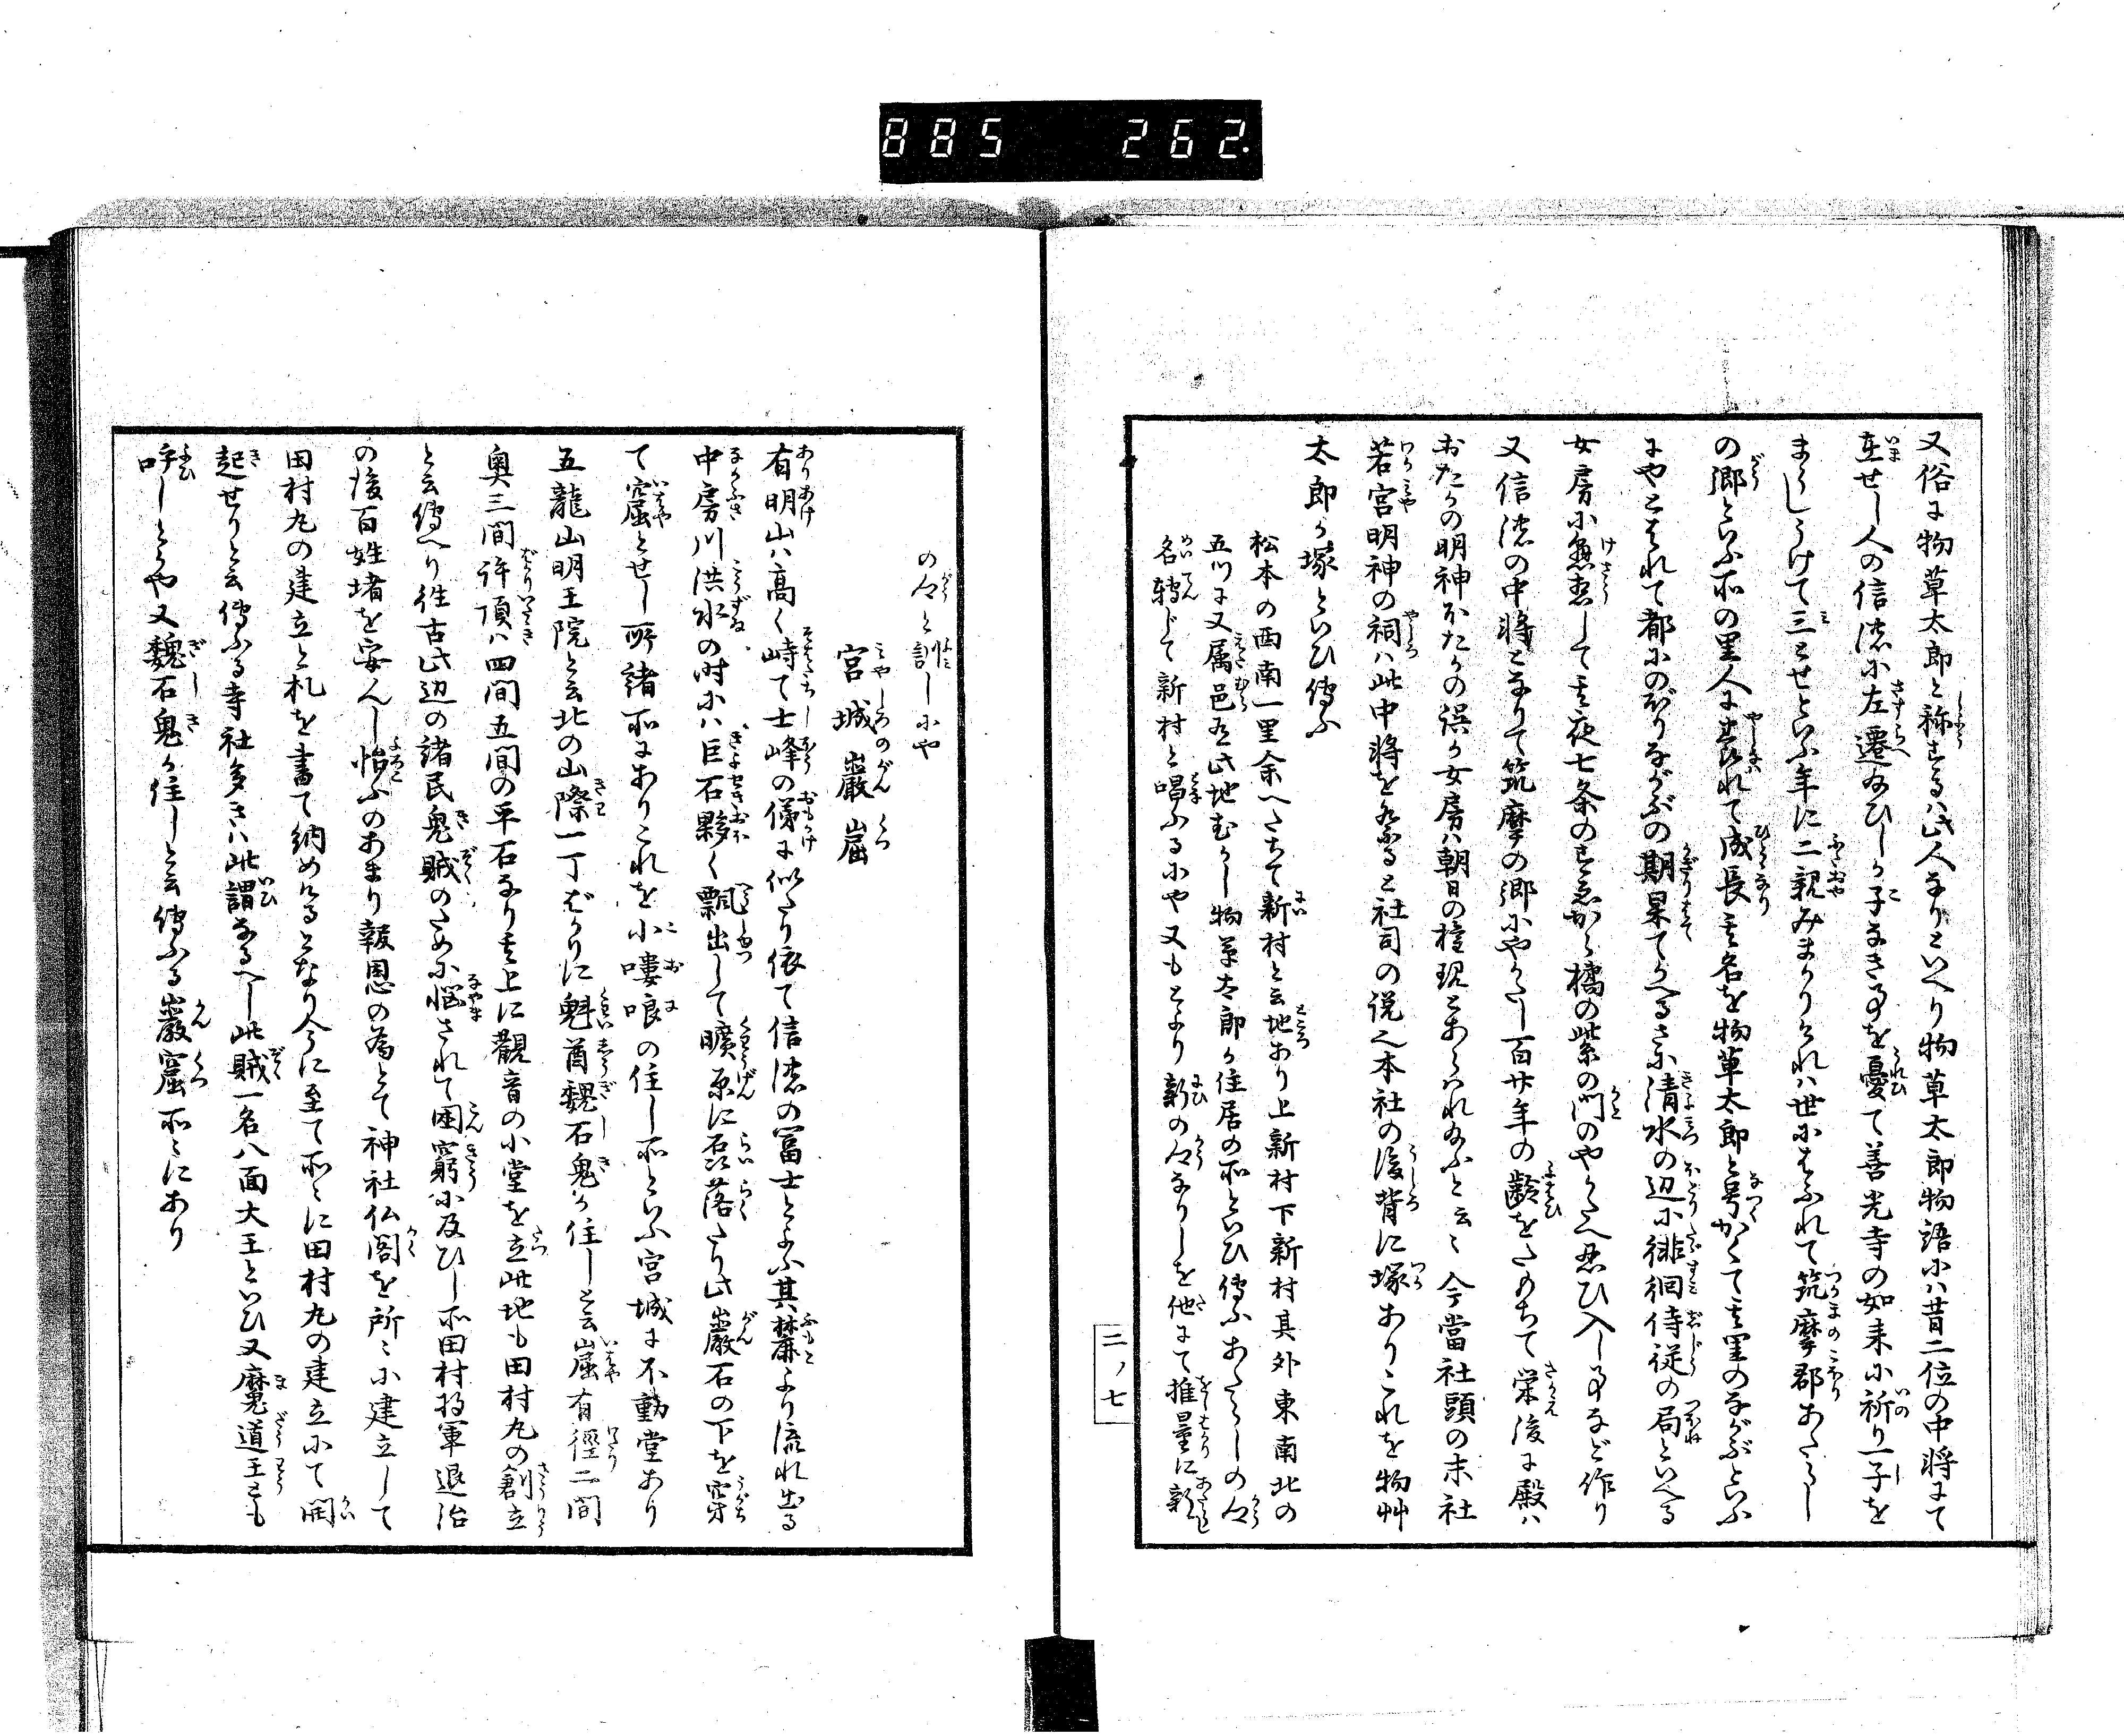 885 262.
又俗に物草太郎と称するハ此人なりといへり物草太郎物語にハ昔二位の中将にて
在せし人の信濃に左遷給ひしか子なき事を憂て善光寺の如来に祈り一子を
まうしうけて三とせといふ年に二親みまかりけれハ世にはふれて筑摩郡あたらし
の郷といふ所の里人に養れて成長其名を物草太郎と号かくて其里のながぶといふ
にやとはれて都にのぼりながぶの期果てかへるさに清水の辺に徘徊侍従の局といへる
女房に懸想して其夜七条のすゑから橘の紫の門のやかたへ忍ひ入し事など作り
又信濃の中将となりて筑摩の郷にやかたし一百廿年の齢をたもちて栄後に殿ハ
おたかの明神ほたかの誤か女房ハ朝日の権現とあらハれ給ふと云々今當社頭の末社
若宮明神の祠ハ此中将を祭ると社司の説也本社の後背に塚ありこれを物艸
太郎か塚といひ傳ふ
松本の西南一里余へたちて新村と云地あり上新村下新村其外東南北の
五つに又属邑有此地むかし物草太郎か住居の所といひ傳ふあたらしの郷
名轉じて新村と唱ふるにや又もとより新の郷なりしを他にて推量に新
二ノ七
の郷と訓しにや
宮城巖崫
有明山ハ高く峙て士峰の俤に似たり依て信濃の冨士とよふ其麓より流れ出る
中房川洪水の時にハ巨石夥く飄出して曠原に磊落たり此巖石の下を穿
て窟とせし所諸所にありこれを小嘍哴の住し所といふ宮城に不動堂あり
五龍山明王院と云北の山際一丁ばかりに魁酋魏石鬼か住しと云崫有徑二間
奥三間許頂ハ四間五間の平石なり其上に觀音の小堂を立此地も田村丸の創立
と云傳へり往古此辺の諸民鬼賊のために悩されて困窮に及ひし所田村将軍退治
の後百姓堵を安んし怡ふのあまり報恩の為とて神社仏閣を所々に建立して
田村丸の建立と札を書て納めけるとなり今に至て所々に田村丸の建立にて開
起せりと云傳ふる寺社多きハ此謂なるへし此賊一名八面大王といひ又魔道王とも
呼しとかや又魏石鬼か住しと云傳ふる巖窟所々にあり